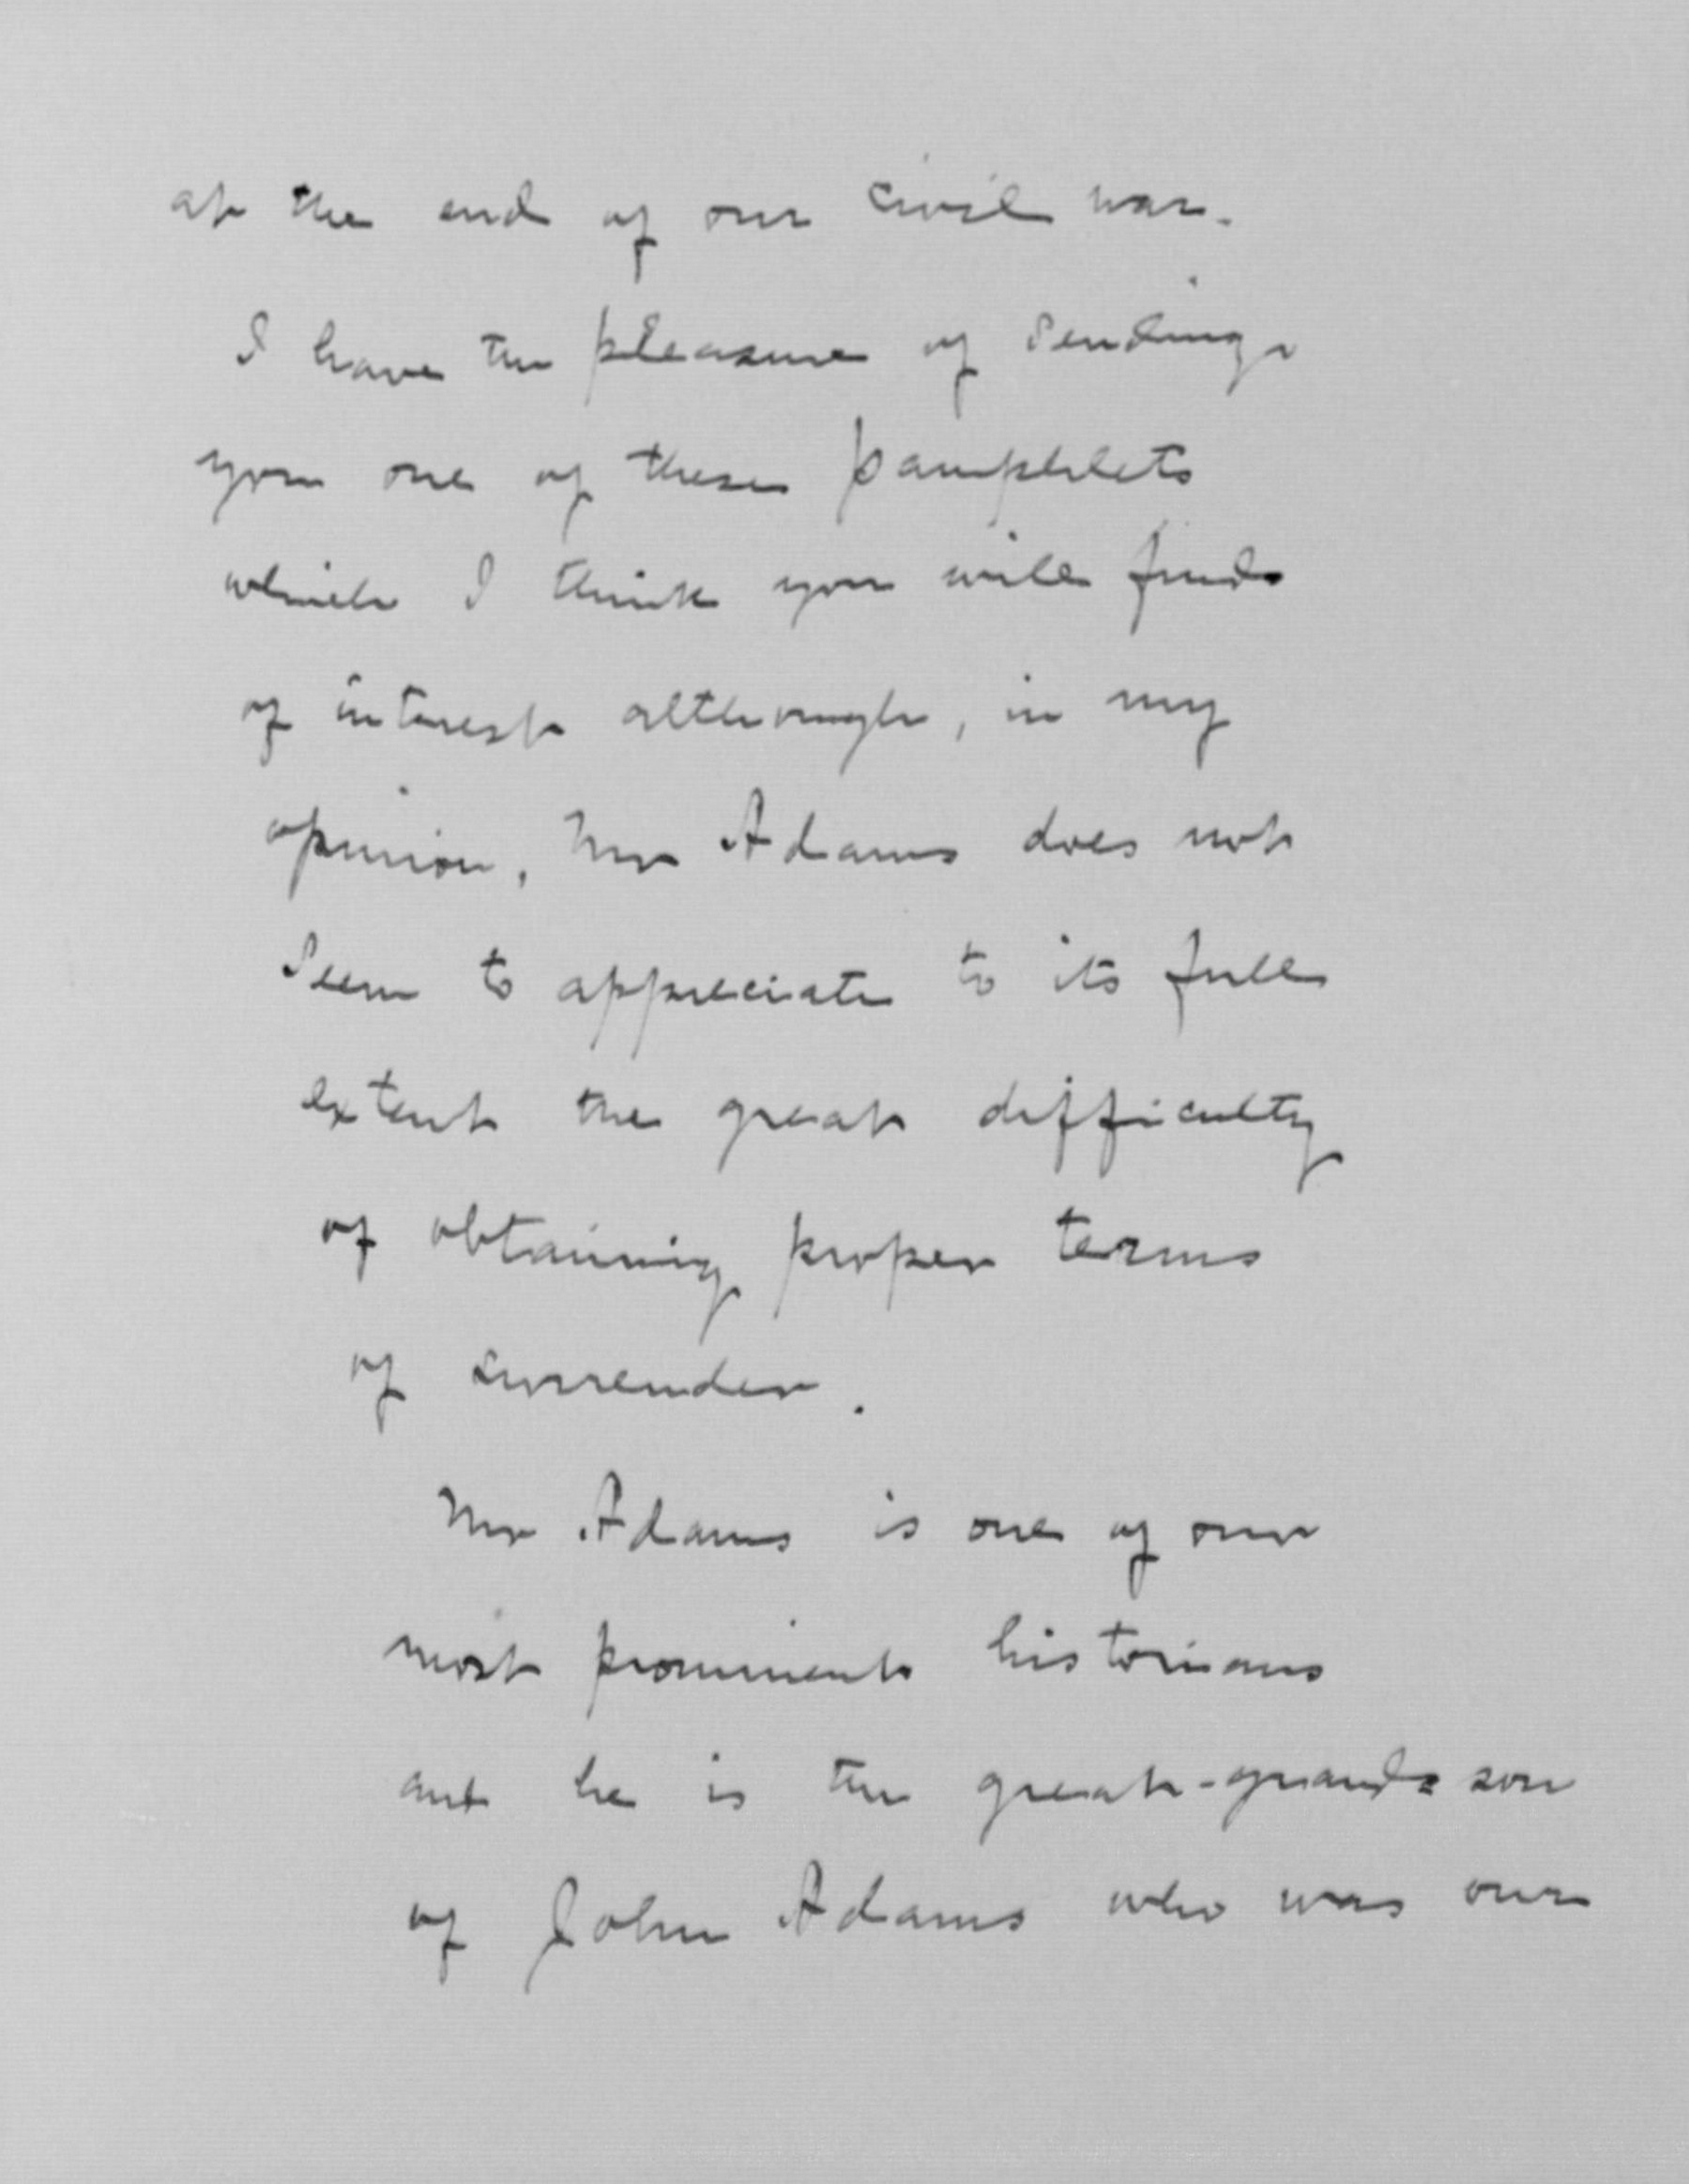 at the end of our civil war.
I have the pleasure of sending
you one of these pamphlets
which I think you will find
of interest although, in my
opinion, Mr Adams does not
seem to appreciate to its full
extent the great difficulty
of obtaining proper terms
of surrender.
Mr Adams is one of our
most prominent historians
and he is the great-grandson
of John Adams who was our